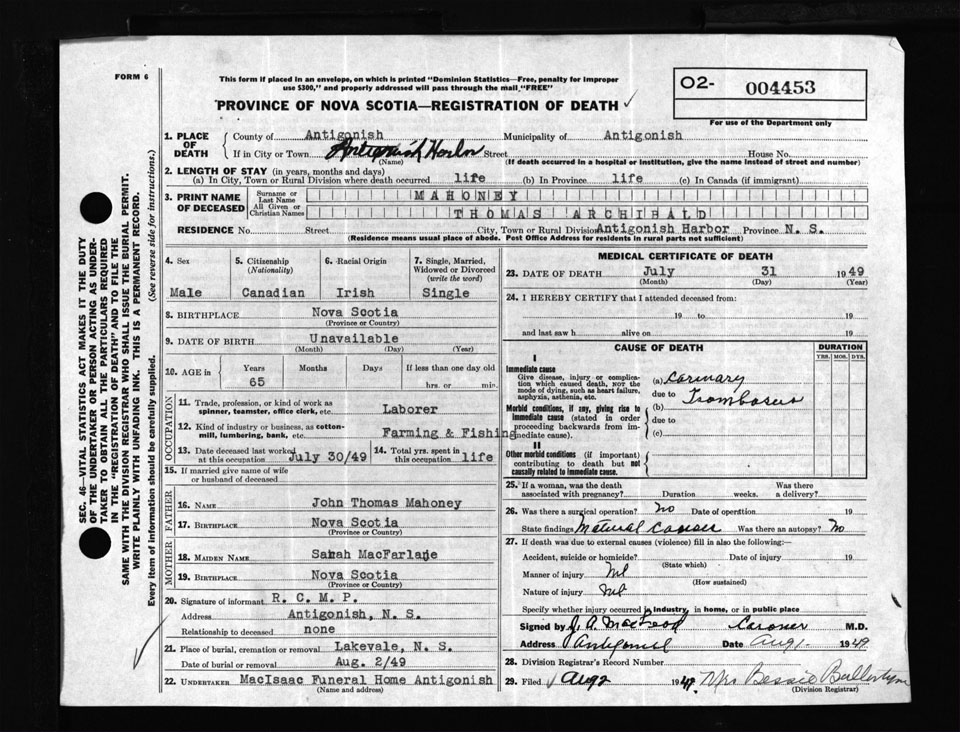 FORM 6
This form if placed in an envelope, on which is printed "Dominion Statistics—Free, penalty for improper
use $300," and properly addressed will pass through the mail "FREE"
PROVINCE OF NOVA SCOTIA—REGISTRATION OF DEATH ✓
O2- 004453
For use of the Department only
SEC. 46—VITAL STATISTICS ACT MAKES IT THE DUTY
OF THE UNDERTAKER OR PERSON ACTING AS UNDER-
TAKER TO OBTAIN ALL THE PARTICULARS REQUIRED
IN THE "REGISTRATION OF DEATH" AND TO FILE THE
SAME WITH THE DIVISION REGISTRAR WHO SHALL ISSUE THE BURIAL PERMIT.
WRITE PLAINLY WITH UNFADING INK. THIS IS A PERMANENT RECORD.
Every item of information should be carefully supplied. (See reverse side for instructions.)
1. PLACE OF DEATH { County of Antigonish Municipality of Antigonish
If in City or Town Antigonish Street House No.
(Name) (If death occurred in a hospital or institution, give the name instead of street and number)
2. LENGTH OF STAY (in years, months and days)
(a) In City, Town or Rural Division where death occurred life (b) In Province life (c) In Canada (if immigrant)
3. PRINT NAME OF DECEASED { Surname or Last Name MAHONEY
All Given or Christian Names THOMAS ARCHIBALD
RESIDENCE No. Street City, Town or Rural Division Antigonish Harbor Province N. S.
(Residence means usual place of abode. Post Office Address for residents in rural parts not sufficient)
4. Sex 5. Citizenship (Nationality) 6. Racial Origin 7. Single, Married, Widowed or Divorced (write the word)
Male Canadian Irish Single
8. BIRTHPLACE Nova Scotia
(Province or Country)
9. DATE OF BIRTH Unavailable
(Month) (Day) (Year)
10. AGE in Years Months Days If less than one day old
65 hrs. or min.
OCCUPATION
11. Trade, profession, or kind of work as
spinner, teamster, office clerk, etc. Laborer
12. Kind of industry or business, as cotton-
mill, lumbering, bank, etc. Farming & Fishing
13. Date deceased last worked at this occupation July 30/49 14. Total yrs. spent in this occupation life
15. If married give name of wife
or husband of deceased
FATHER
16. Name John Thomas Mahoney
17. Birthplace Nova Scotia
MOTHER
18. Maiden Name Sarah MacFarlane
19. Birthplace Nova Scotia
(Province or Country)
20. Signature of informant R. C. M. P.
Address Antigonish, N. S.
Relationship to deceased none
21. Place of burial, cremation or removal Lakevale, N. S.
Date of burial or removal Aug. 2/49
22. Undertaker MacIsaac Funeral Home Antigonish
(Name and address)
MEDICAL CERTIFICATE OF DEATH
23. DATE OF DEATH July 31 1949
(Month) (Day) (Year)
24. I HEREBY CERTIFY that I attended deceased from:
19 to 19
and last saw h alive on 19
CAUSE OF DEATH DURATION
YRS. MOS. DYS.
I
Immediate cause
Give disease, injury or complica-
tion which caused death, NOT the
mode of dying, such as heart failure,
asphyxia, asthenia, etc.
(a) Cormary
due to
(b) Trombosus
due to
(c)
Morbid conditions, if any, giving rise to
immediate cause (stated in order
proceeding backwards from im-
mediate cause).
II
Other morbid conditions (if important)
contributing to death but not
causally related to immediate cause.
25. If a woman, was the death Was there
associated with pregnancy? Duration weeks. a delivery?
26. Was there a surgical operation? No Date of operation 19
State findings Natural Causes Was there an autopsy? No
27. If death was due to external causes (violence) fill in also the following:—
Accident, suicide or homicide? Date of injury 19
(State which)
Manner of injury Nil
(How sustained)
Nature of injury Nil
Specify whether injury occurred in industry, in home, or in public place
Signed by J. A. MacLeod Coroner M.D.
Address Antigonish Date Aug 1. 1949
28. Division Registrar's Record Number
29. Filed Aug 2 1949. Mrs Bessie
(Division Registrar)